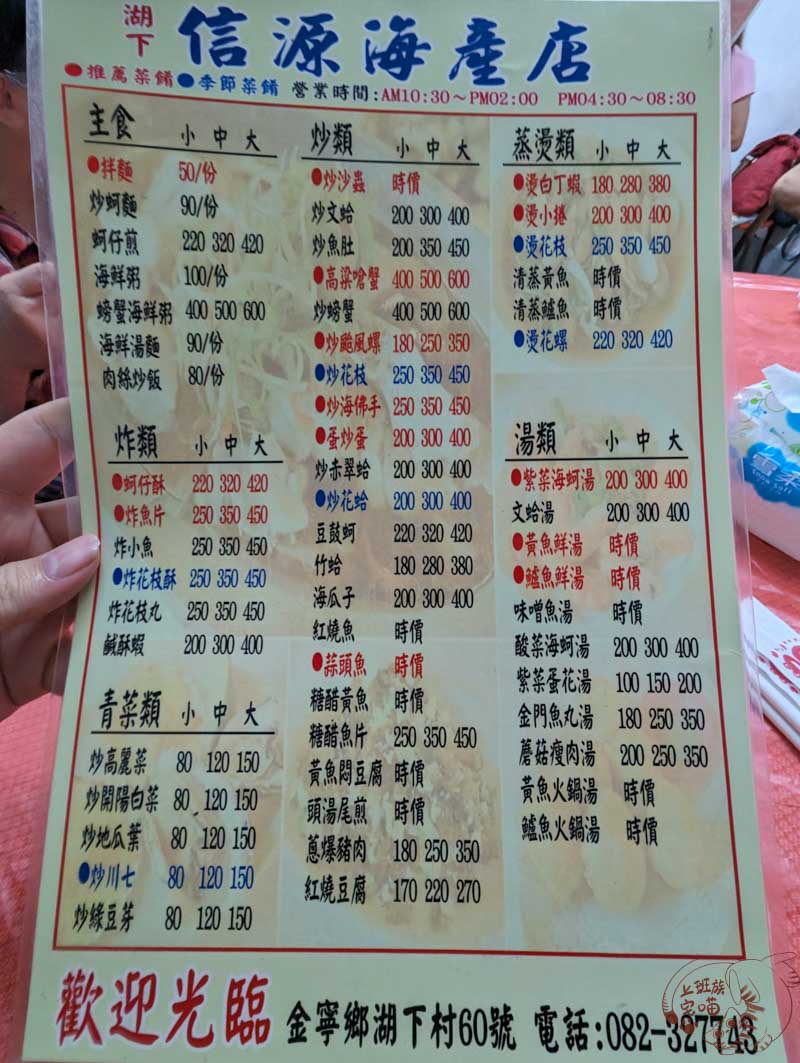 湖下 信源海產店
●推薦菜餚●季節菜餚 營業時間:AM10:30～PM02:00 PM04:30～08:30
主食 小 中 大
●拌麵 50/份
炒蚵麵 90/份
蚵仔煎 220 320 420
海鮮粥 100/份
螃蟹海鮮粥 400 500 600
海鮮湯麵 90/份
肉絲炒飯 80/份
炸類 小 中 大
●蚵仔酥 220 320 420
●炸魚片 250 350 450
炸小魚 250 350 450
●炸花枝酥 250 350 450
炸花枝丸 250 350 450
鹹酥蝦 200 300 400
青菜類 小 中 大
炒高麗菜 80 120 150
炒開陽白菜 80 120 150
炒地瓜葉 80 120 150
●炒川七 80 120 150
炒綠豆芽 80 120 150
炒類 小 中 大
●炒沙蟲 時價
炒文蛤 200 300 400
炒魚肚 200 350 450
●高粱嗆蟹 400 500 600
炒螃蟹 400 500 600
●炒颱風螺 180 250 350
●炒花枝 250 350 450
●炒海佛手 250 350 450
●蛋炒蛋 200 300 400
炒赤翠蛤 200 300 400
●炒花蛤 200 300 400
豆鼓蚵 220 320 420
竹蛤 180 280 380
海瓜子 200 300 400
紅燒魚 時價
●蒜頭魚 時價
糖醋黃魚 時價
糖醋魚片 250 350 450
黃魚悶豆腐 時價
頭湯尾煎 時價
蔥爆豬肉 180 250 350
紅燒豆腐 170 220 270
蒸燙類 小 中 大
●燙白丁蝦 180 280 380
●燙小捲 200 300 400
●燙花枝 250 350 450
清蒸黃魚 時價
清蒸鱸魚 時價
●燙花螺 220 320 420
湯類 小 中 大
●紫菜海蚵湯 200 300 400
文蛤湯 200 300 400
●黃魚鮮湯 時價
●鱸魚鮮湯 時價
味噌魚湯 時價
酸菜海蚵湯 200 300 400
紫菜蛋花湯 100 150 200
金門魚丸湯 180 250 350
蘑菇瘦肉湯 200 250 350
黃魚火鍋湯 時價
鱸魚火鍋湯 時價
歡迎光臨 金寧鄉湖下村60號 電話:082-327743
上班族
宅喵